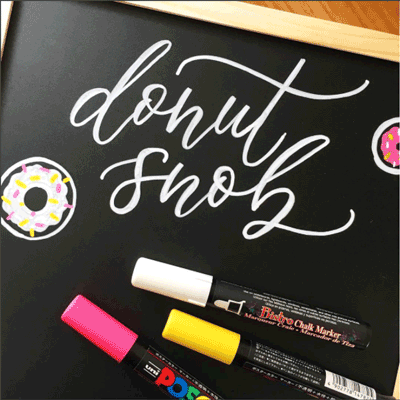 donut
snob
Bistro Chalk Marker
Marqueur Craie • Marcador de Tiza
uni
POSCA